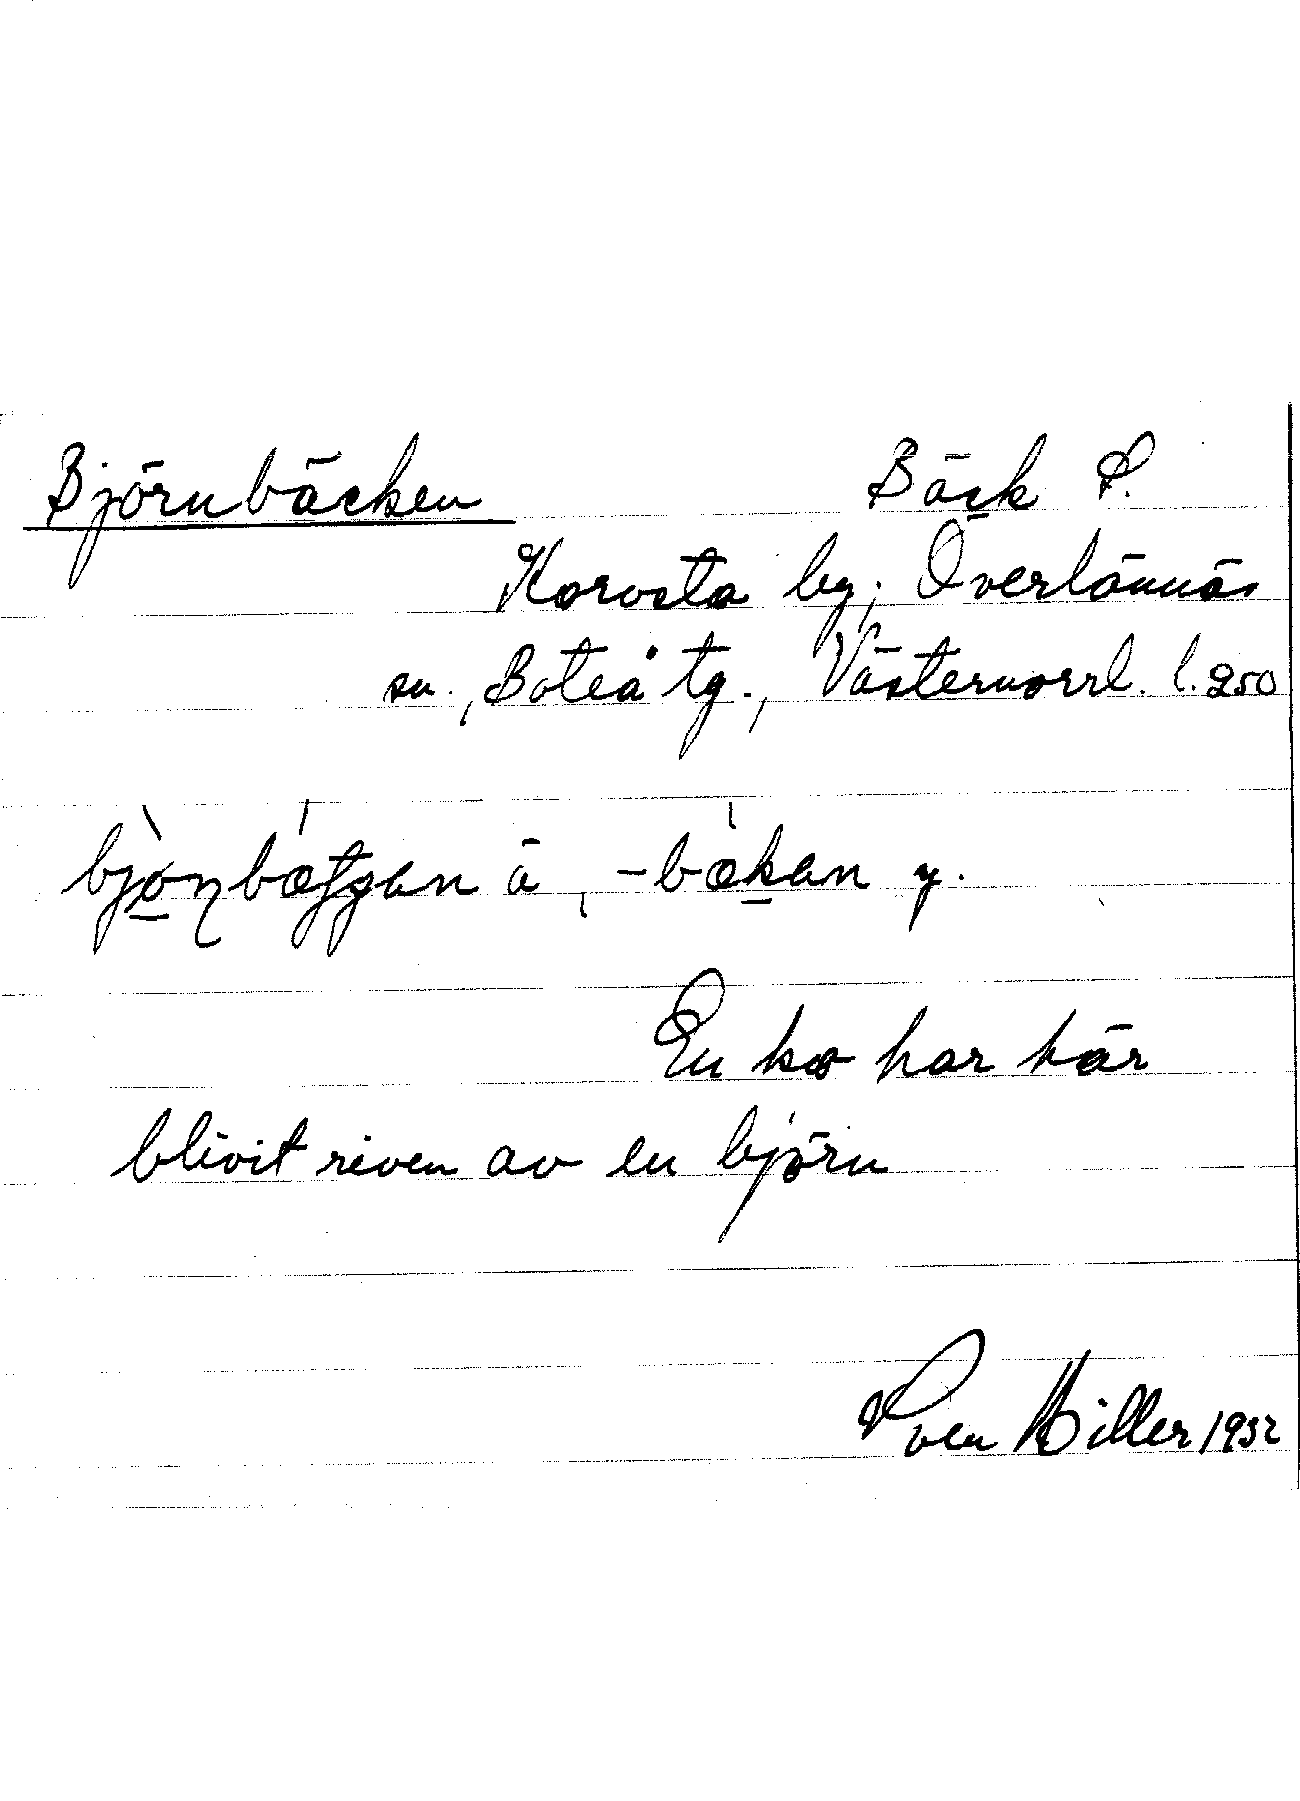 Björnbäcken Bäck S.
Korvsta by, Överlännäs
sn., Boteå tg., Västernorrl. l. 250
ä, -bækan y.
En ko har här
blivit riven av en björn
Sven Hiller 1932